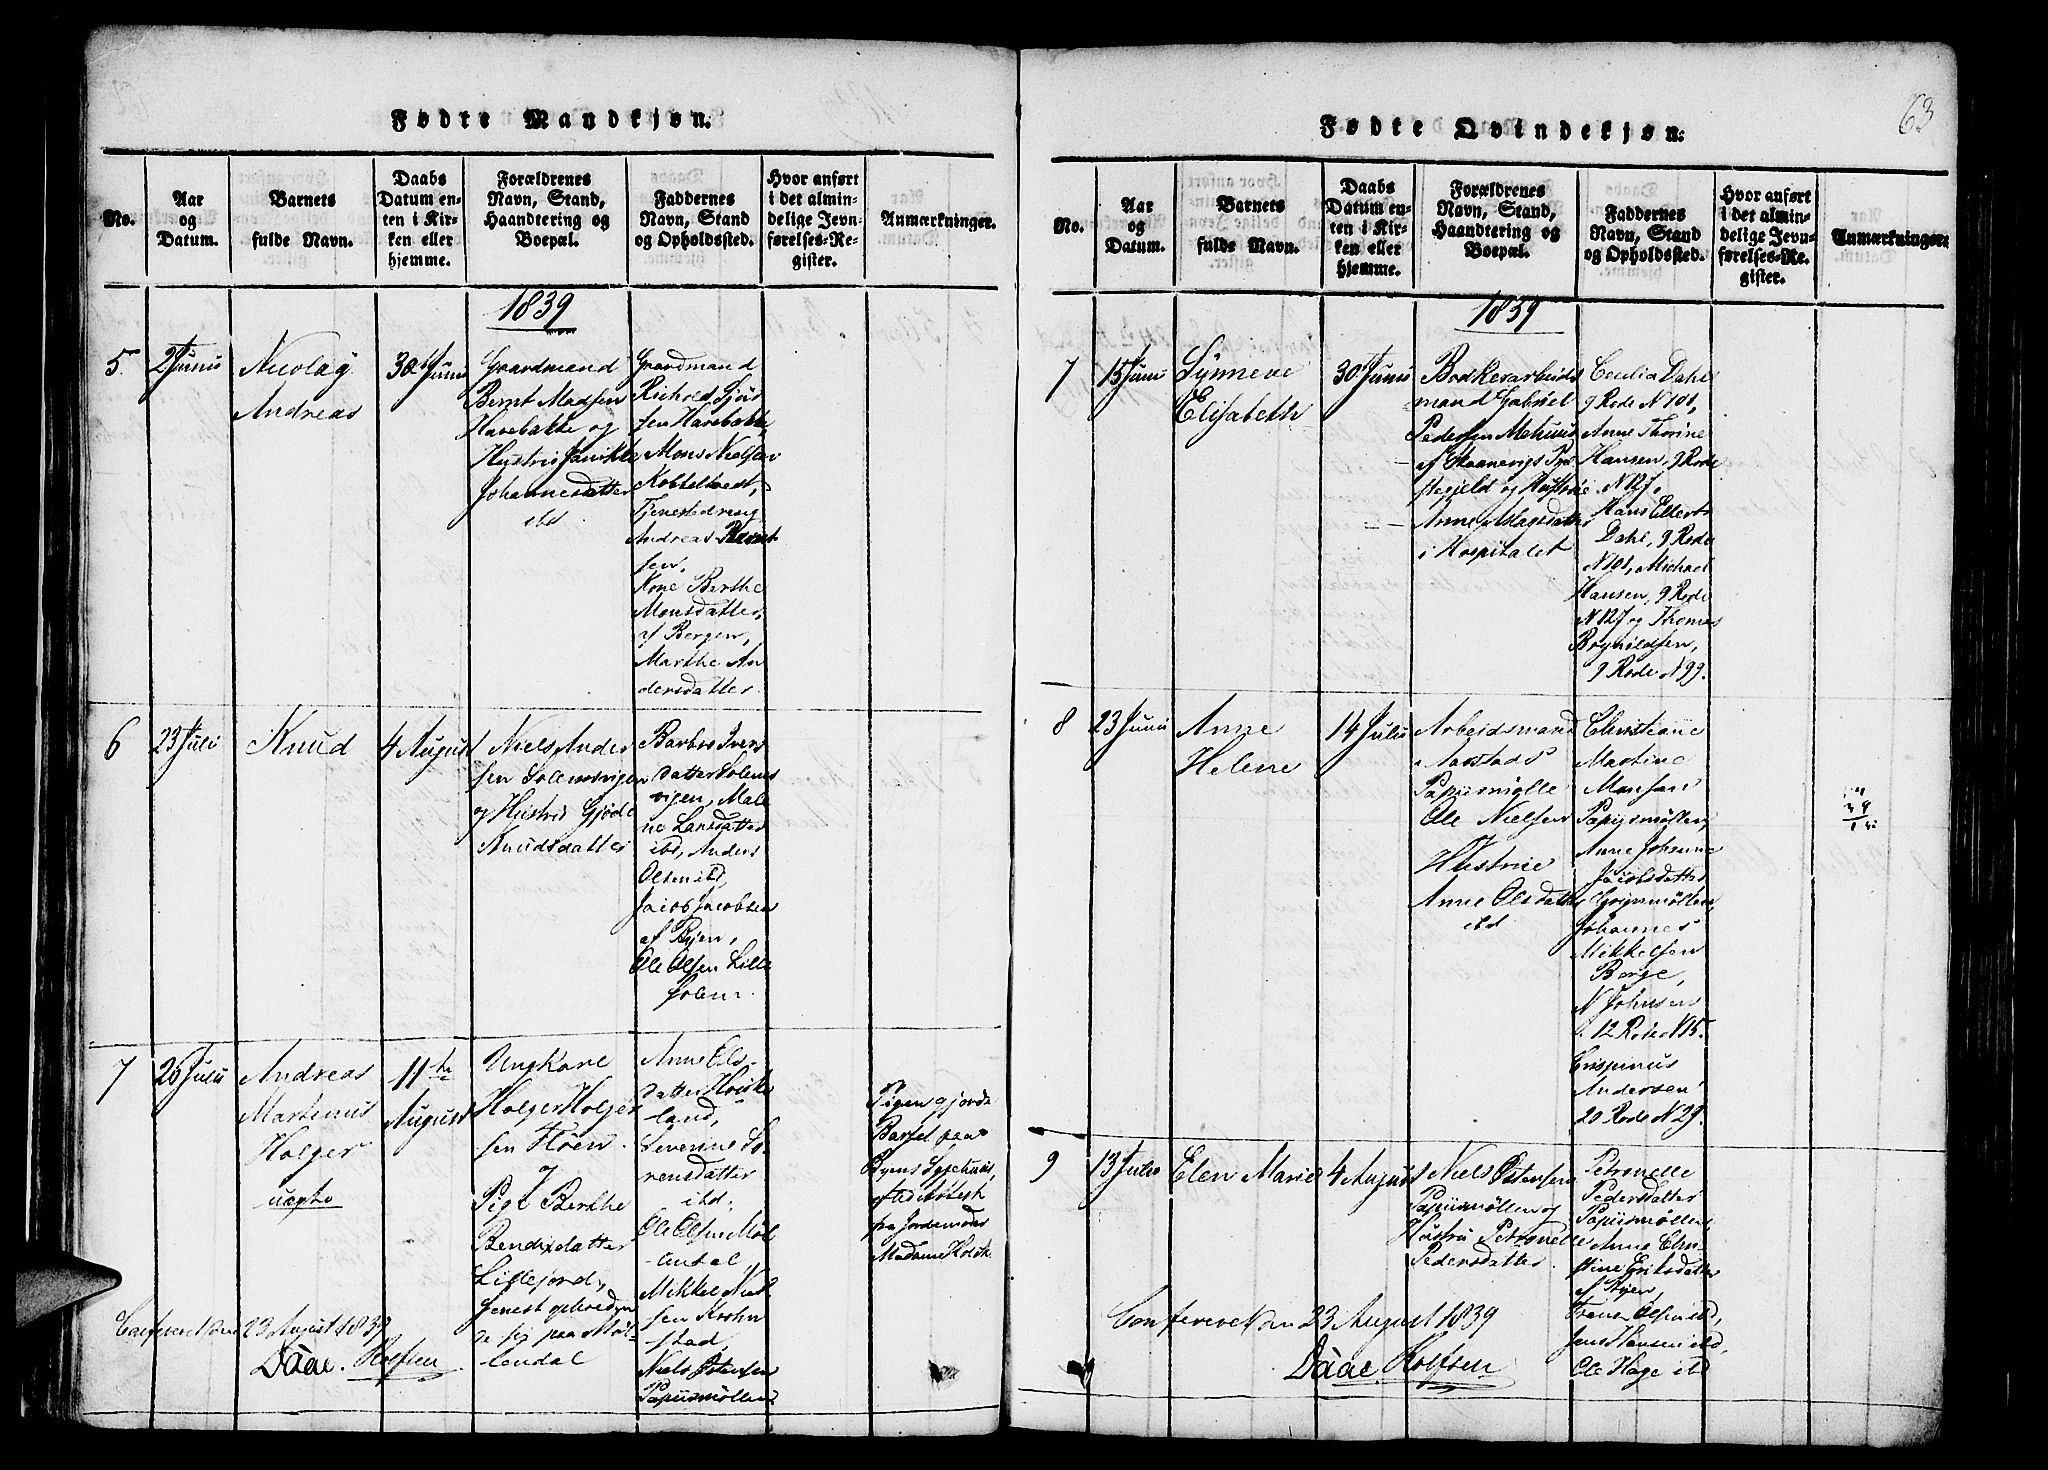 Fødte Mandkjøn.
No.
Aar
og
Datum.
Barnets
fulde Navn.
Daabs
Datum en-
ten i Kir-
ken eller
hjemme.
Forældrenes
Navn, Stand,
Haandtering og
Boepæl.
Faddernes
Navn, Stand
og Opholdssted.
Hvor anført
i det almin-
delige Jevn-
førelses-Re-
gister.
Anmærkninger.
1839
5.
2 Junii
Nicolay
Andreas
30 Junii
Gaardmand
Bernt Madsen
Havebakke og
Hustrue
Johannesdatter
ibd
Gaardmand
Richold
sen Havebakke,
Mons Nielsen
Tjenestedreng
Andreas Bernt
sen,
Kone Berthe
Monsdatter,
af Bergen,
Marthe An
dersdatter
6
23 Juli
Knud
4 August
Niels Ander
sen Solemsvigen
og Hustrue Gjøde
Knudsdatter
Barbro Ivers
datter Solems
vigen, Male
ne Larsdatter
ibd, Anders
Olsen ibd,
Jacob Jacobsen
af Byen,
Ole Olsen Lille
Solem.
7
26 Julii
Andreas
Martinus
Holger
uægte
11te
August
Ungkarl
Holger Holger
sen Hoen
Pige Berthe
Bendixdatter
Lillejord,
paa Møl-
lendal
Anne Ols-
datter
land,
Severine So
rensdatter
ibd,
Ole Olsen Møl
lendal,
Mikkel Niel
sen Krohn
stad,
Niels Ostensen
Papiirsmøllen
Pigen gjorde
Barsel paa
Byens
Attest
fra Jordemoder
Madame Holck
Confereret den 23 August 1839
Daae. Rolfsen
63
Fødte Qvindekjøn.
No.
Aar
og
Datum.
Barnets
fulde Navn.
Daabs
Datum en-
ten i Kir-
ken eller
hjemme.
Forældrenes
Navn, Stand,
Haandtering og
Boepæl.
Faddernes
Navn, Stand
og Opholdssted.
Hvor anført
i det almin-
delige Jevn-
førelses-Re-
gister.
Anmærkninger.
1839
7
15 Junii
Synneve
Elisabeth
30 Junii
mand Gabriel
Pedersen
af Skaanevigs Præ
stegjeld og Hustrue
Anne Aslagsdatter
i Hospitalet
Cecilia Dahl
9 Rode N 101,
Anne Thorine
Hansen, 9 Rode
N 127,
Hans Ellerts
Dahl, 9 Rode
N 101, Michael
Hansen, 9 Rode
N 127 og Thomas
9 Rode N 99.
8
23 Junii
Anne
Helene
14 Julii
Arbeidsmand
Aarstads
Papiirmølle
Ole Nielsen
Hustrue
Anne Olsdatter
ibd
Christiane
Martine
Monsen
Papiirsmøllen,
Anne Johanne
Jacobsdatter
Johannes
Mikkelsen
Berge,
N Johnsen
12 Rode N 15.
Crispinus
Andersen
20 Rode N 29.
9
13 Julii
Elen Marie
4 August
Niels Ostensen
Papiirmøllen og
Hustru Petronelle
Pedersdatter
Petronelle
Pedersdatter
Papiirmøllen
Anne Chri-
stine Eriksdatter
af Byen,
Olsen ibd,
Jens Hansen ibd,
Ole Hage ibd
Confereret den 23 August 1839
Daae Rolfsen